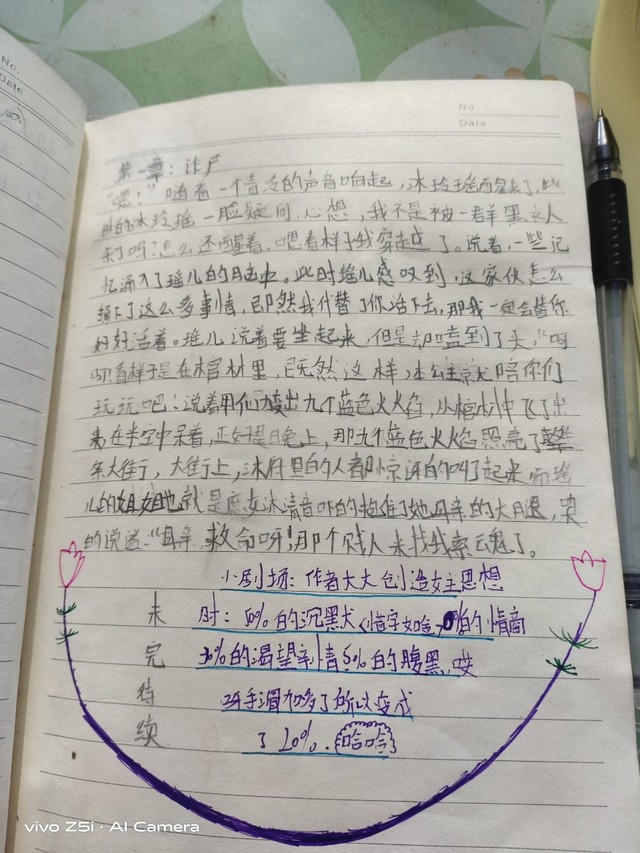 No.
Date
No.
Date
第一章：诈尸
"嗯？"随着一个清冷的声音响起，冰玲瑶西名天了，此
刻的冰玲瑶一脸疑问，心想，我不是被一群黑衣人
杀了吗？怎么还醒着，嗯看样子我穿越了。说着，一些记
忆涌入了瑶儿的脑中。此时瑶儿感叹到，这家伙怎么
操下了这么多事情，既然我代替了你活下去，那我一定会替你
好好活着。瑶儿说着要坐起来，但是却嗑到了头，"呀
呀！看样子是在棺材里，既然这样，本公主就陪你们
玩玩吧！说着用仙力变出九个蓝色火焰，从棺材中飞了出
来在半空中呆着，正好是晚上，那九个蓝色火焰照亮了整
条大街，大街上，沐府里的人都惊讶的叫了起来 而瑶
儿的姐姐也就是庶女沐清音吓的抱住了她母亲的大腿，哭
的说道："母亲，救命呀！那个贱人来找我索魂了。
小剧场：作者大大创造女主思想
未 时：50%的沉默犬<惜字如金>，0%的情商
完 30%的渴望亲情5%的腹黑，哎
待 呀手滑加多了所以变成
续 了20%.哈哈
vivo Z5i · AI Camera